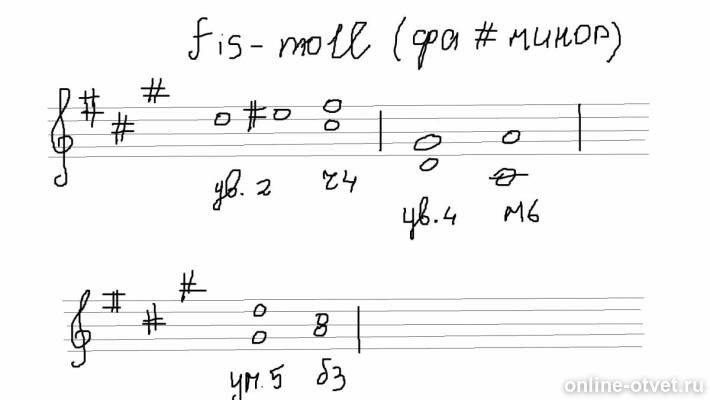 fis-moll (фа # минор)
ув. 2 ч4
ув.4 м6
ум.5 б3
online-otvet.ru